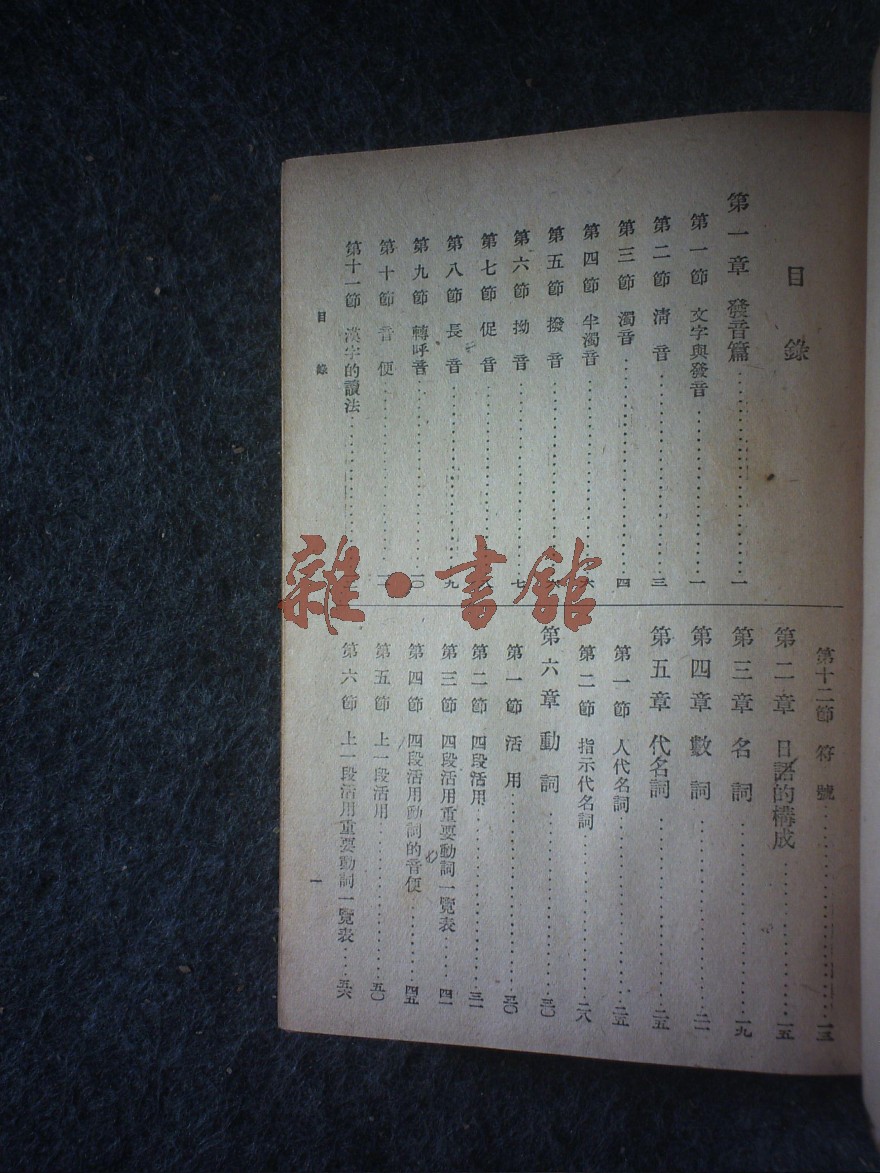 目錄
第一章 發音篇…………一
第一節 文字與發音…………一
第二節 清音…………三
第三節 濁音…………四
第四節 半濁音…………六
第五節 撥音…………六
第六節 拗音…………七
第七節 促音…………八
第八節 長音…………九
第九節 轉呼音…………一〇
第十節 音便…………一一
第十一節 漢字的讀法…………
第十二節 符號…………一三
第二章 日語的構成…………一五
第三章 名詞…………一九
第四章 數詞…………二一
第五章 代名詞…………二五
第一節 人代名詞…………二五
第二節 指示代名詞…………二八
第六章 動詞…………三〇
第一節 活用…………三〇
第二節 四段活用…………三一
第三節 四段活用重要動詞一覽表…………四一
第四節 四段活用動詞的音便…………四五
第五節 上一段活用…………五〇
第六節 上一段活用重要動詞一覽表…………五六
目錄
一
雜·書館